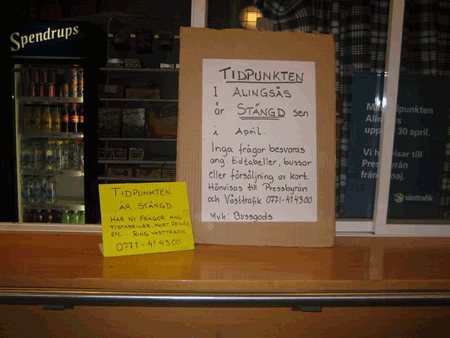 Spendrups
TIDPUNKTEN
I ALINGSÅS
är STÄNGD sen
i April.
Inga frågor besvaras
ang. tidtabeller, bussar
eller försäljning av kort.
Hänvisas till Pressbyrån
och Västtrafik 0771-414300
Mvh: Bussgods
TIDPUNKTEN
ÄR STÄNGD
HAR NI FRÅGOR ANG.
TIDTABELLER, KORT,
ETC. RING VÄSTTRAFIK
0771-414300
Tidpunkten
Alingsås
30 april.
Vi hänvisar till
Pressbyrån
från maj.
västtrafik